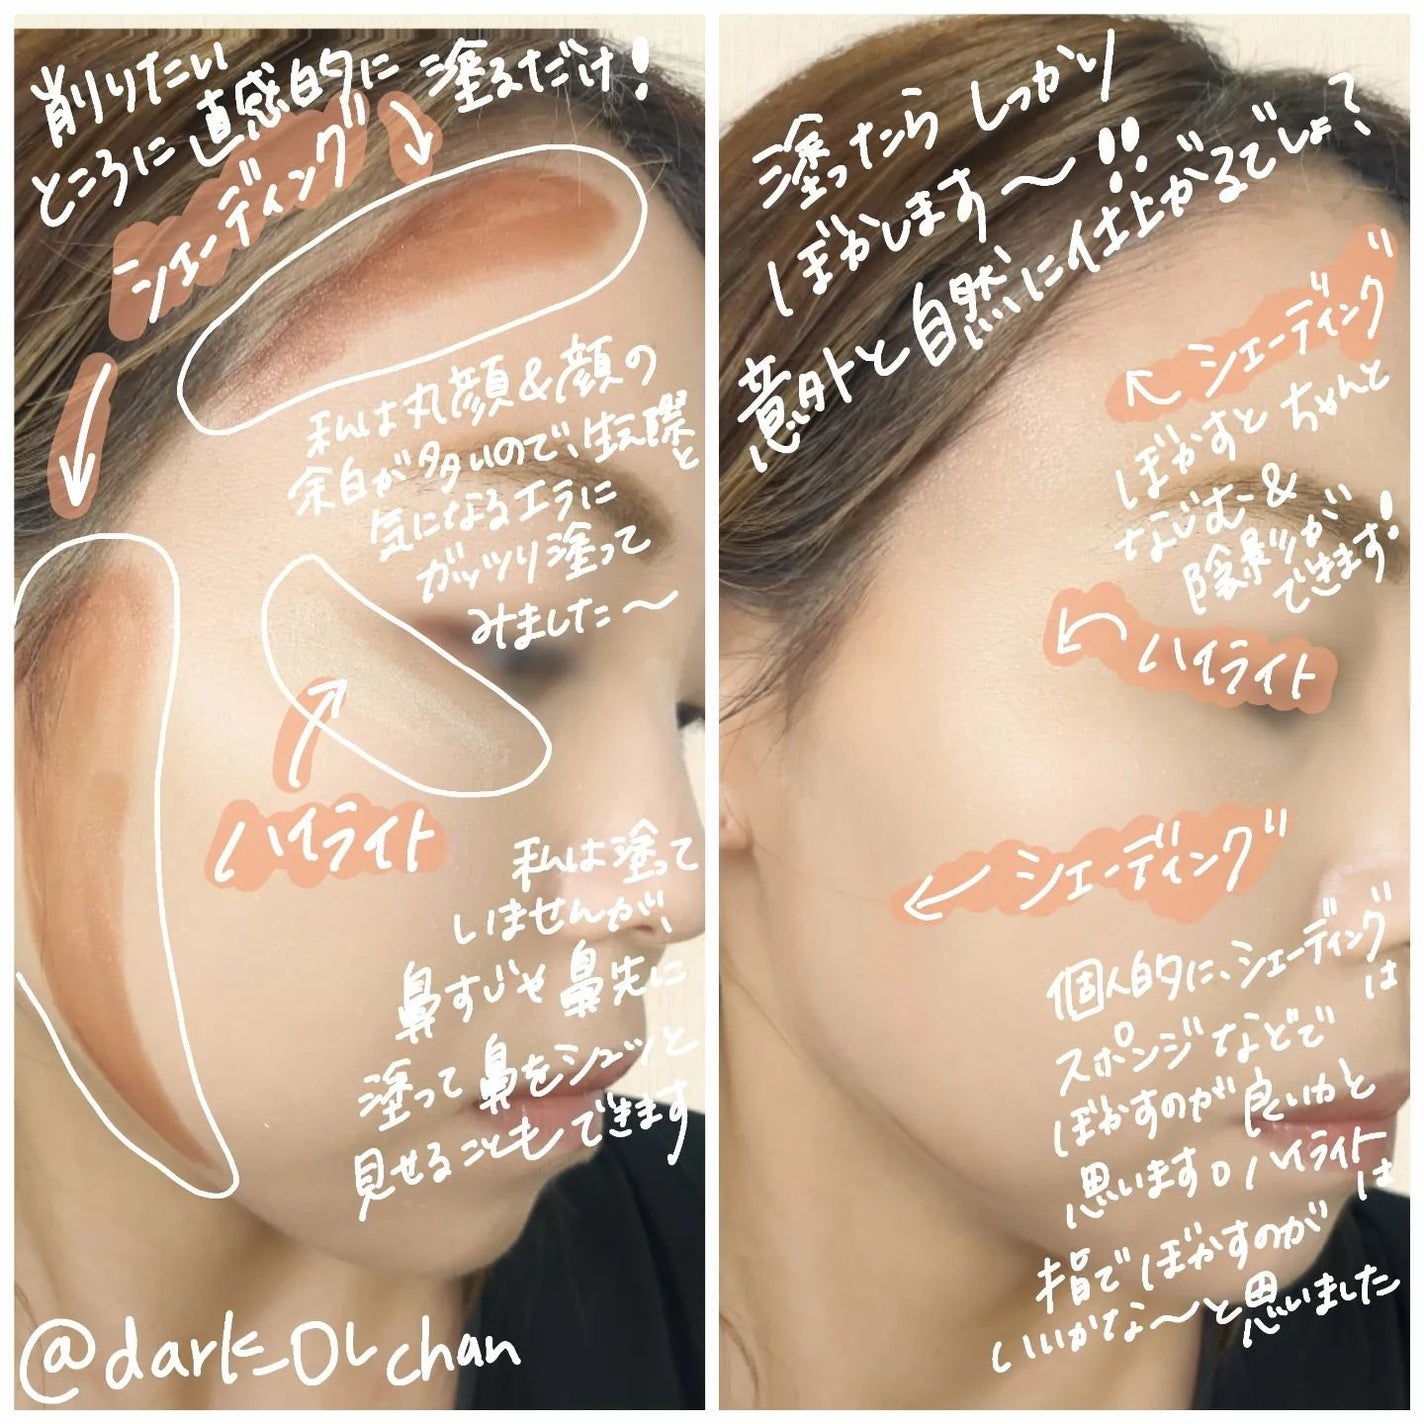 削りたい
ところに直感的に塗るだけ!
シェーディング
私は丸顔&顔の
余白が多いので、生え際と
気になるエラに
ガッツリ塗って
みました〜
ハイライト
私は塗って
いませんが、
鼻すじや鼻先に
塗って鼻をシュッと
見せることもできます
@dark_OL chan
塗ったらしっかり
ぼかします〜!!
意外と自然に仕上がるでしょ?
シェーディング
ぼかすとちゃんと
なじむ&
陰影が
できます!
ハイライト
シェーディング
個人的に、シェーディングは
スポンジなどで
ぼかすのが良いかと
思います。ハイライトは
指でぼかすのが
いいかな〜と思いました